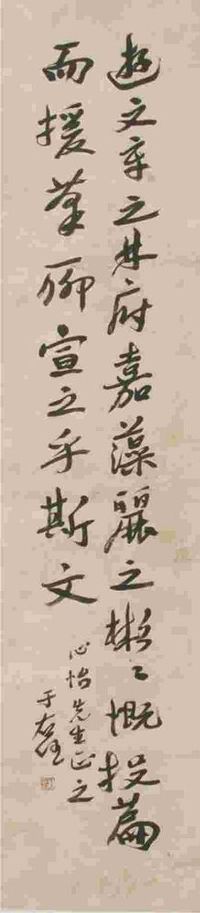 遊文章之林府嘉藻麗之彬々慨投篇
而援筆聊宣之乎斯文
心怡先生正之
于右任